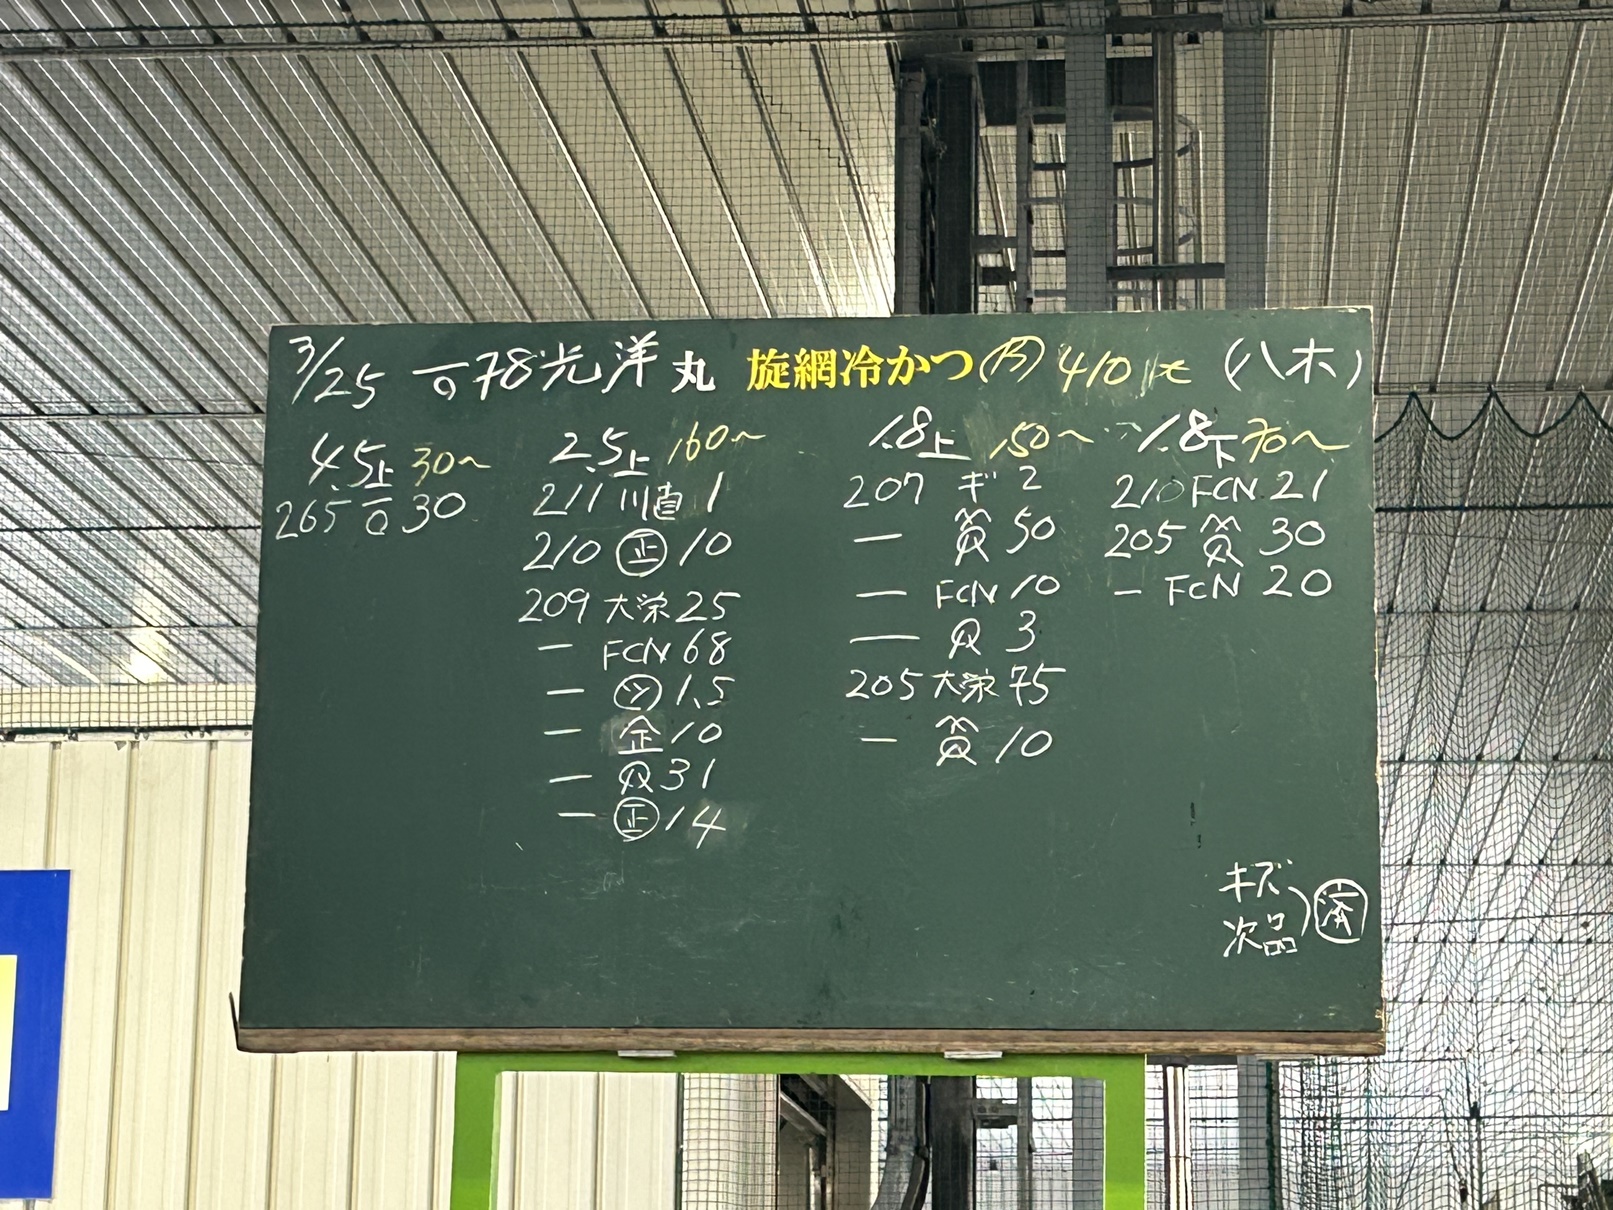 3/25 78光洋丸 旋網冷かつ 内 410 t (八木)
4.5上 30〜
265 30
2.5上 160〜
211 川直 1
210 正 10
209 大栄 25
— FCN 68
— ツ 1.5
— 10
— 31
— 正 14
1.8上 150〜
207 ギ 2
— 50
— FCN 10
— 3
205 大栄 75
— 10
1.8下 70〜
210 FCN 21
205 30
— FCN 20
キズ
次品
済